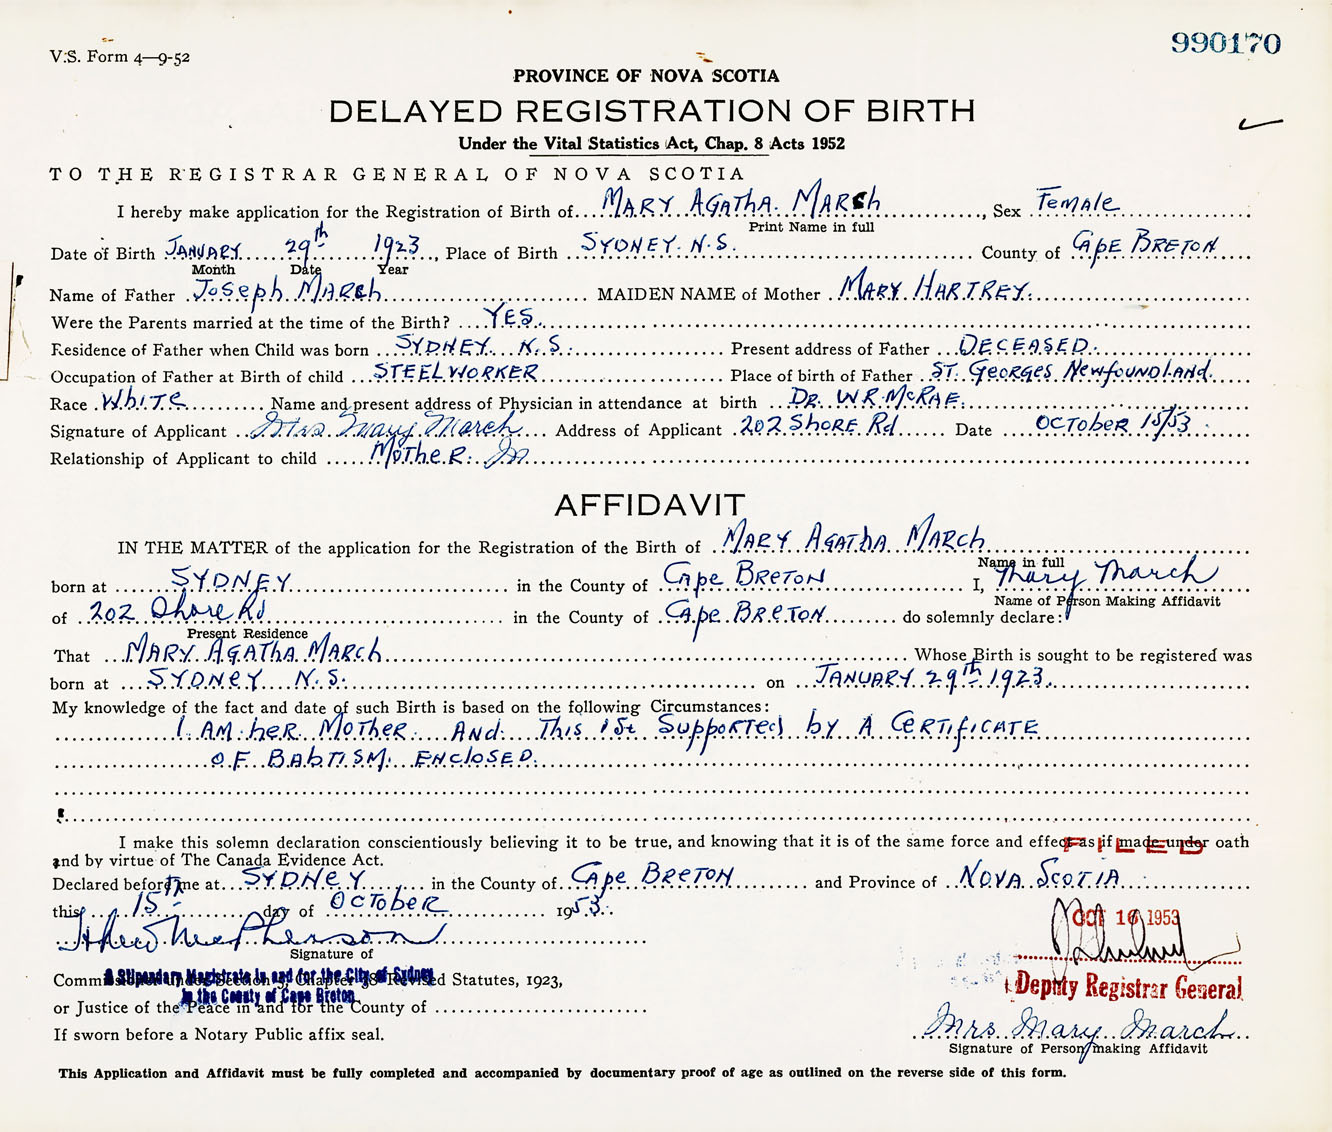 990170
V.S. Form 4—9-52
PROVINCE OF NOVA SCOTIA
DELAYED REGISTRATION OF BIRTH
Under the Vital Statistics Act, Chap. 8 Acts 1952
TO THE REGISTRAR GENERAL OF NOVA SCOTIA
I hereby make application for the Registration of Birth of MARY AGATHA MARch, Sex FemAle
Print Name in full
Date of Birth JANUARY 29th 1923, Place of Birth SYDNEY N.S. County of CApe BRETON
Month Date Year
Name of Father Joseph MARch MAIDEN NAME of Mother MARY HARTREY.
Were the Parents married at the time of the Birth? YES.
Residence of Father when Child was born SYDNEY N.S. Present address of Father DECEASED.
Occupation of Father at Birth of child STEELWORKER Place of birth of Father ST. GeorGES NewfoundLAnd.
Race WhITE Name and present address of Physician in attendance at birth DR. W.R. McRAE.
Signature of Applicant Mrs Mary March Address of Applicant 202 ShoRE Rd Date OCTobeR 15/53
Relationship of Applicant to child MoTheR.
AFFIDAVIT
IN THE MATTER of the application for the Registration of the Birth of MARY AGAThA MARch
Name in full
born at SYDNEY in the County of CApe BReTON I, Mary March
Name of Person Making Affidavit
of 202 Shore Rd in the County of CApe BReTON do solemnly declare:
Present Residence
That MARY AGAThA MARch Whose Birth is sought to be registered was
born at SYDNeY N.S. on JANUARY 29th 1923.
My knowledge of the fact and date of such Birth is based on the following Circumstances:
I AM heR MoTheR And This is Supported by A CeRTificATE
OF BAbTISM ENclosED.
I make this solemn declaration conscientiously believing it to be true, and knowing that it is of the same force and effect as if made under oath
and by virtue of The Canada Evidence Act.
FILED
Declared before me at SYDNeY in the County of CApe BReTON and Province of NOVA ScoTIA
this 15th day of OCTobeR 1953.
OCT 16 1953
Signature of
A Stipendary Magistrate in and for the City of Sydney
in the County of Cape Breton
Commissioner under Section 3, Chapter 38 Revised Statutes, 1923,
Deputy Registrar General
or Justice of the Peace in and for the County of
Mrs. Mary March
If sworn before a Notary Public affix seal.
Signature of Person making Affidavit
This Application and Affidavit must be fully completed and accompanied by documentary proof of age as outlined on the reverse side of this form.